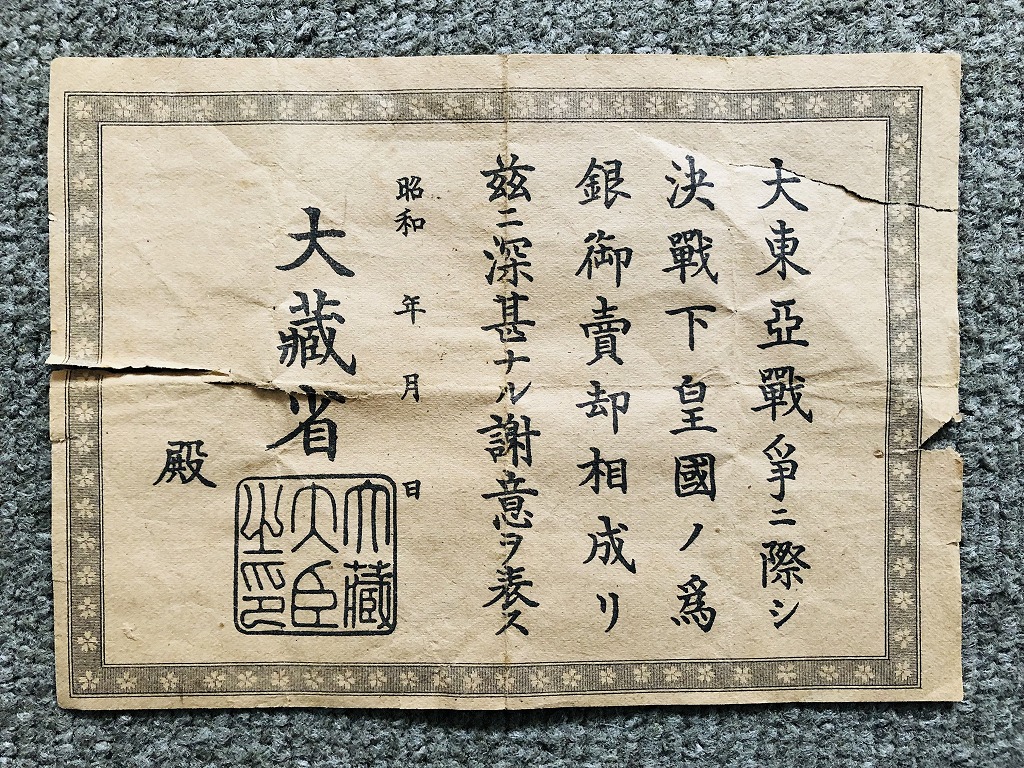 大東亞戰爭ニ際シ
決戰下皇國ノ爲
銀御賣却相成リ
玆ニ深甚ナル謝意ヲ表ス
昭和 年 月 日
大藏省
大藏
大臣
之印
殿